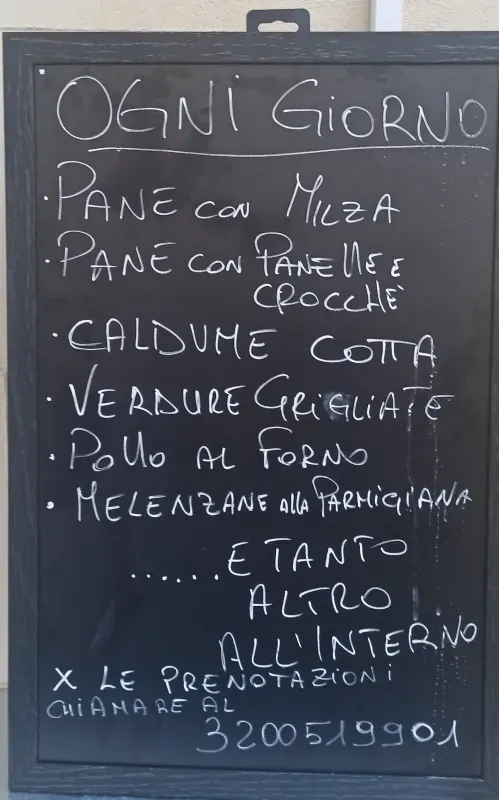 OGNI GIORNO
· PANE CON MILZA
· PANE CON PANELLE E
CROCCHE'
· CALDUME COTTA
· VERDURE GRIGLIATE
· POLLO AL FORNO
· MELENZANE ALLA PARMIGIANA
......E TANTO
ALTRO
ALL'INTERNO
X LE PRENOTAZIONI
CHIAMARE AL
3200519901